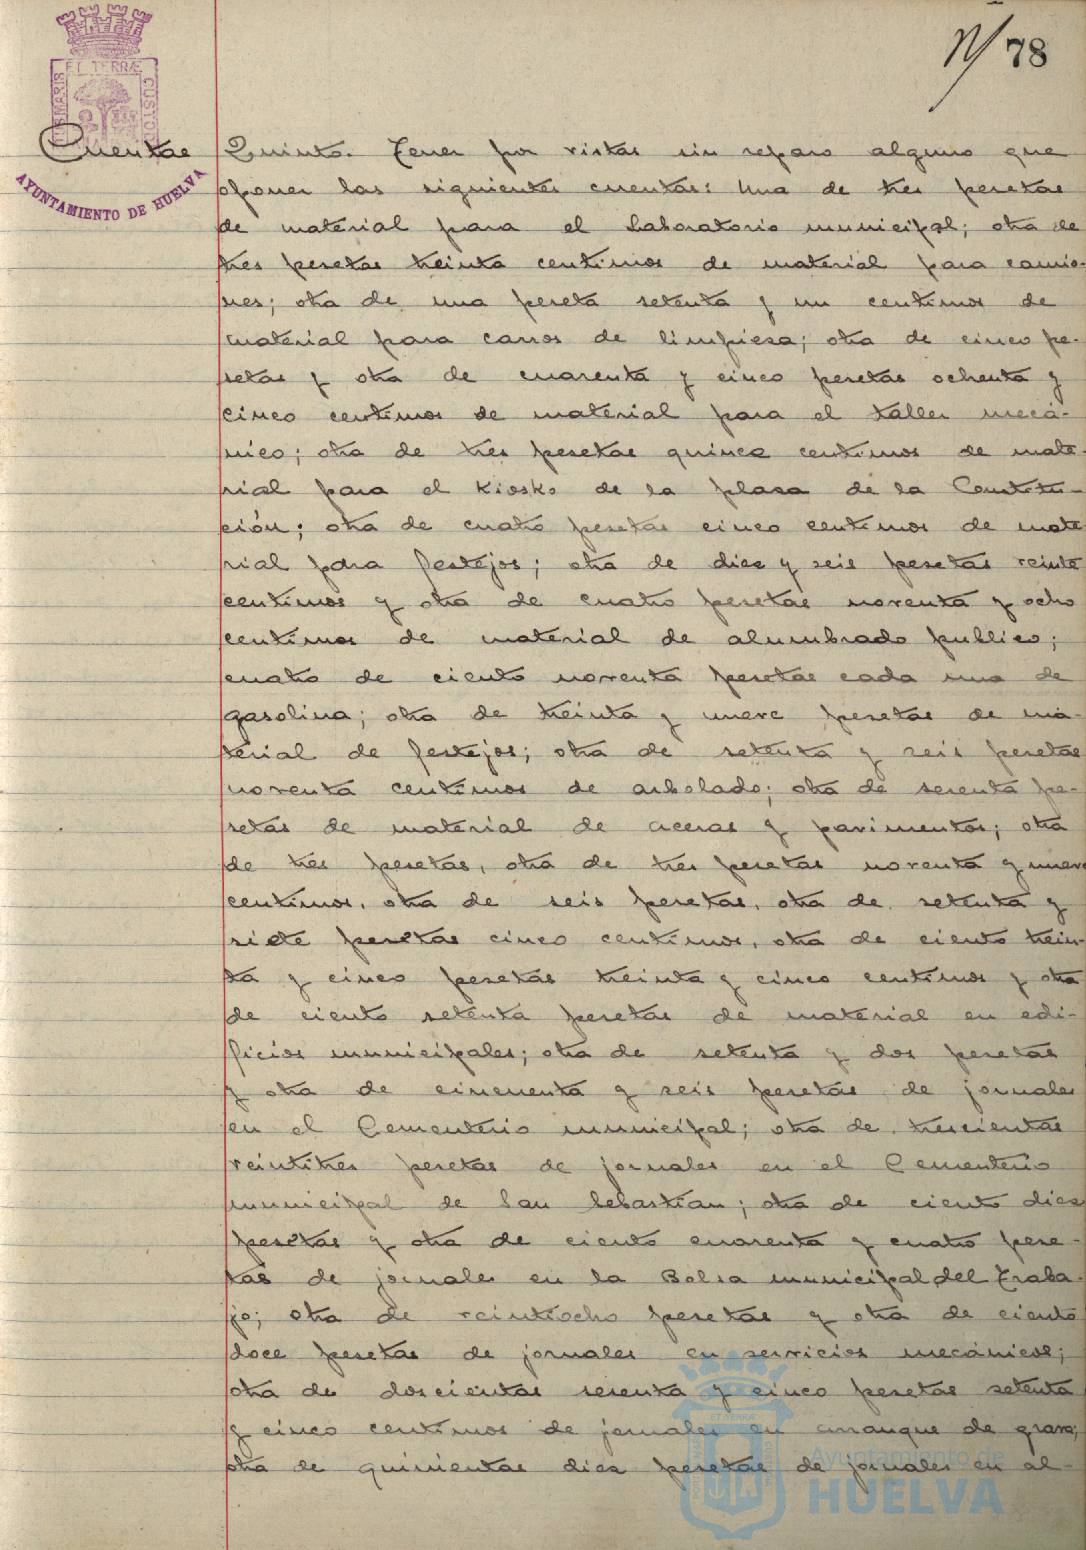 N/ 78
ET TERRÆ
CUSTODIA
AYUNTAMIENTO DE HUELVA
Cuentas
Quinto. Tener por vistas sin reparo alguno que
oponer las siguientes cuentas: una de tres pesetas
de material para el Laboratorio municipal; otra de
tres pesetas treinta centimos de material para camio-
nes; otra de una peseta setenta y un centimos de
material para carros de limpiesa; otra de cinco pe-
setas y otra de cuarenta y cinco pesetas ochenta y
cinco centimos de material para el taller mecá-
nico; otra de tres pesetas quince centimos de mate-
rial para el Kiosko de la plasa de la Constitu-
ción; otra de cuatro pesetas cinco centimos de mate
rial para festejos; otra de dies y seis pesetas veinte
centimos y otra de cuatro pesetas noventa y ocho
centimos de material de alumbrado publico;
cuatro de ciento noventa pesetas cada una de
gasolina; otra de treinta y nueve pesetas de ma-
terial de festejos; otra de setenta y seis pesetas
noventa centimos de arbolado; otra de sesenta pe-
setas de material de aceras y pavimentos; otra
de tres pesetas, otra de tres pesetas noventa y nueve
centimos, otra de seis pesetas, otra de setenta y
siete pesetas cinco centimos, otra de ciento trein-
ta y cinco pesetas treinta y cinco centimos y otra
de ciento setenta pesetas de material en edi-
ficios municipales; otra de setenta y dos pesetas
y otra de cincuenta y seis pesetas de jornales
en el Cementerio municipal; otra de trescientas
veintitres pesetas de jornales en el Cementerio
municipal de San Sebastian; otra de ciento dies
pesetas y otra de ciento cuarenta y cuatro pese-
tas de jornales en la Bolsa municipal del Traba-
jo; otra de veintiocho pesetas y otra de ciento
doce pesetas de jornales en servicios mecánicos;
otra de doscientas sesenta y cinco pesetas setenta
y cinco centimos de jornales en arranque de grava;
otra de quinientas dies pesetas de jornales en al-
Ayuntamiento de
HUELVA